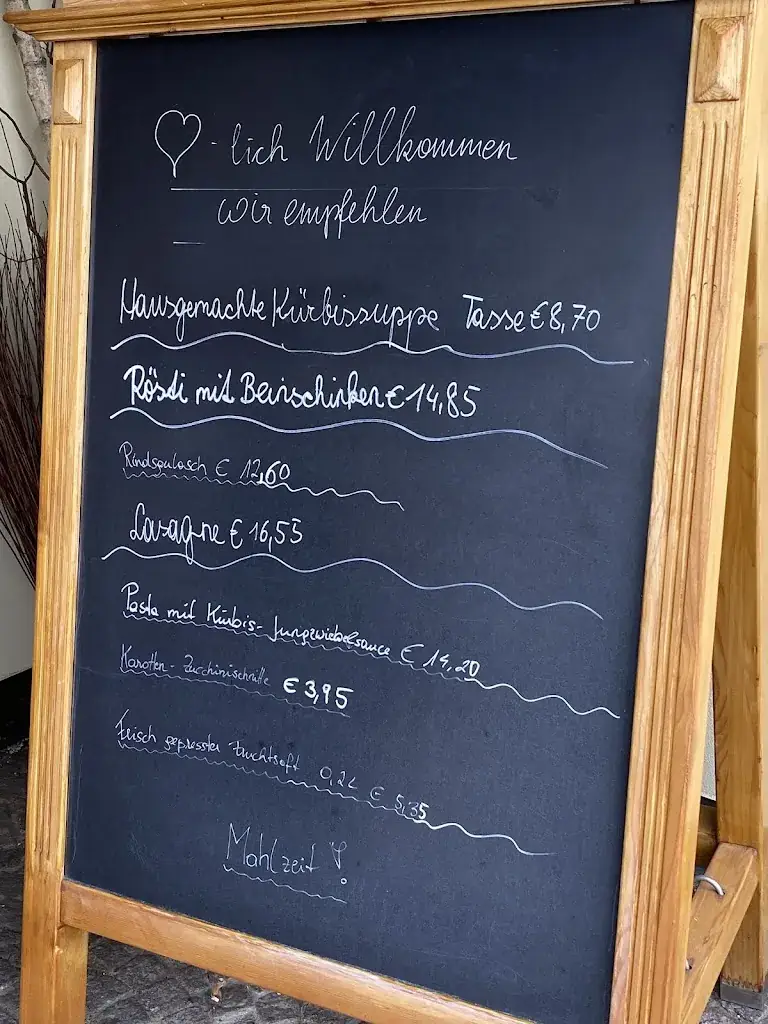 ♡-lich Willkommen
wir empfehlen
Hausgemachte Kürbissuppe Tasse € 8,70
Rösti mit Beinschinken € 14,85
Rindsgulasch € 12,60
Lasagne € 16,55
Pasta mit Kürbis-Jungzwiebelsauce € 14,20
Karotten-Zucchinischnitte € 3,95
Frisch gepresster Fruchtsaft 0,2L € 5,35
Mahlzeit!